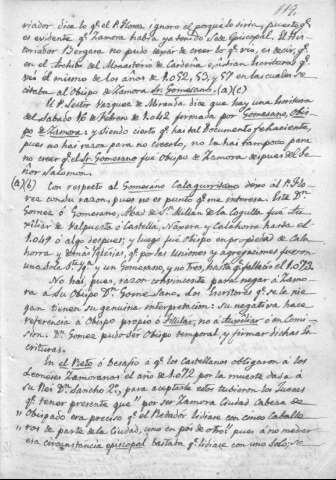 119.
riador dice lo qe. el P. Florez ignoró el porqué lo diria, puesto qe.
es evidente qe. Zamora habia ya tenido Sede Episcopal. El His-
toriador Bergara no pudo dejar de creer lo qe. veia, es decir, qe.
en el Archivo del Monasterio de Cardeña existian Escrituras qe.
vió él mismo de los años de 1.052, 53, y 57 en las cuales se
citaba al Obispo de Zamora Dn. Gomesano. (a)(c)
El P. Lector Vazquez de Miranda dice que hay una Escritura
del Sabado 16 de Febrero de 1.062 firmada por Gomesano, Obis-
po de Zamora; y siendo cierto qe. hai tal Documento fehaciente,
pues no hai razon para no creerlo, no la hai tampoco para
no creer qe. el Dn. Gomesano fue Obispo de Zamora despues del Se-
ñor Salomon.
(a)(b) Con respecto al Gomesano Calagurritano dejó al P. Flo-
rez con su razon, pues no es punto qe. me interesa. Este Dn.
Gomez ó Gomesano, Abad de Sn. Millan de la Cogulla fue Au-
xiliar de Valpuesta ó Castella, Náxera y Calahorra hasta el
1.049 ó algo despues; y luego fué Obispo en propiedad de Cala-
horra y demás Iglesias, qe. por las uniones y agregaciones fueron
una sola Sª. Yª. y un Gomesano, y no tres, hasta qe. falleció el 1.073.
No hai pues, razon convincente para negar á Zamo-
ra á su Obispo Dn. Gomesano. Los Escritores qe. se la nie-
gan tienen su genuina interpretacion: su negativa hace
referencia á Obispo propio ó Titular, no á Auxiliar ó en Comi-
sion. Dn. Gomez pudo ser Obispo temporal, y firmar dichas Es-
crituras.
En el Reto ó desafío á qe. los Castellanos obligaron á los
Leoneses Zamoranos el año de 1.072 por la muerte dada á
su Rei Dn. Sancho 2º., para aceptarle estos tubieron los Jueces
qe. tener presente que "por ser Zamora Ciudad Cabeza de
"Obispado era preciso qe. el Retador lidiase con cinco Caballe-
"ros de parte de la Ciudad, uno en pos de otro" pues á no medi-
ar esa circunstancia episcopal bastaba qe. lidiase con uno solo; se